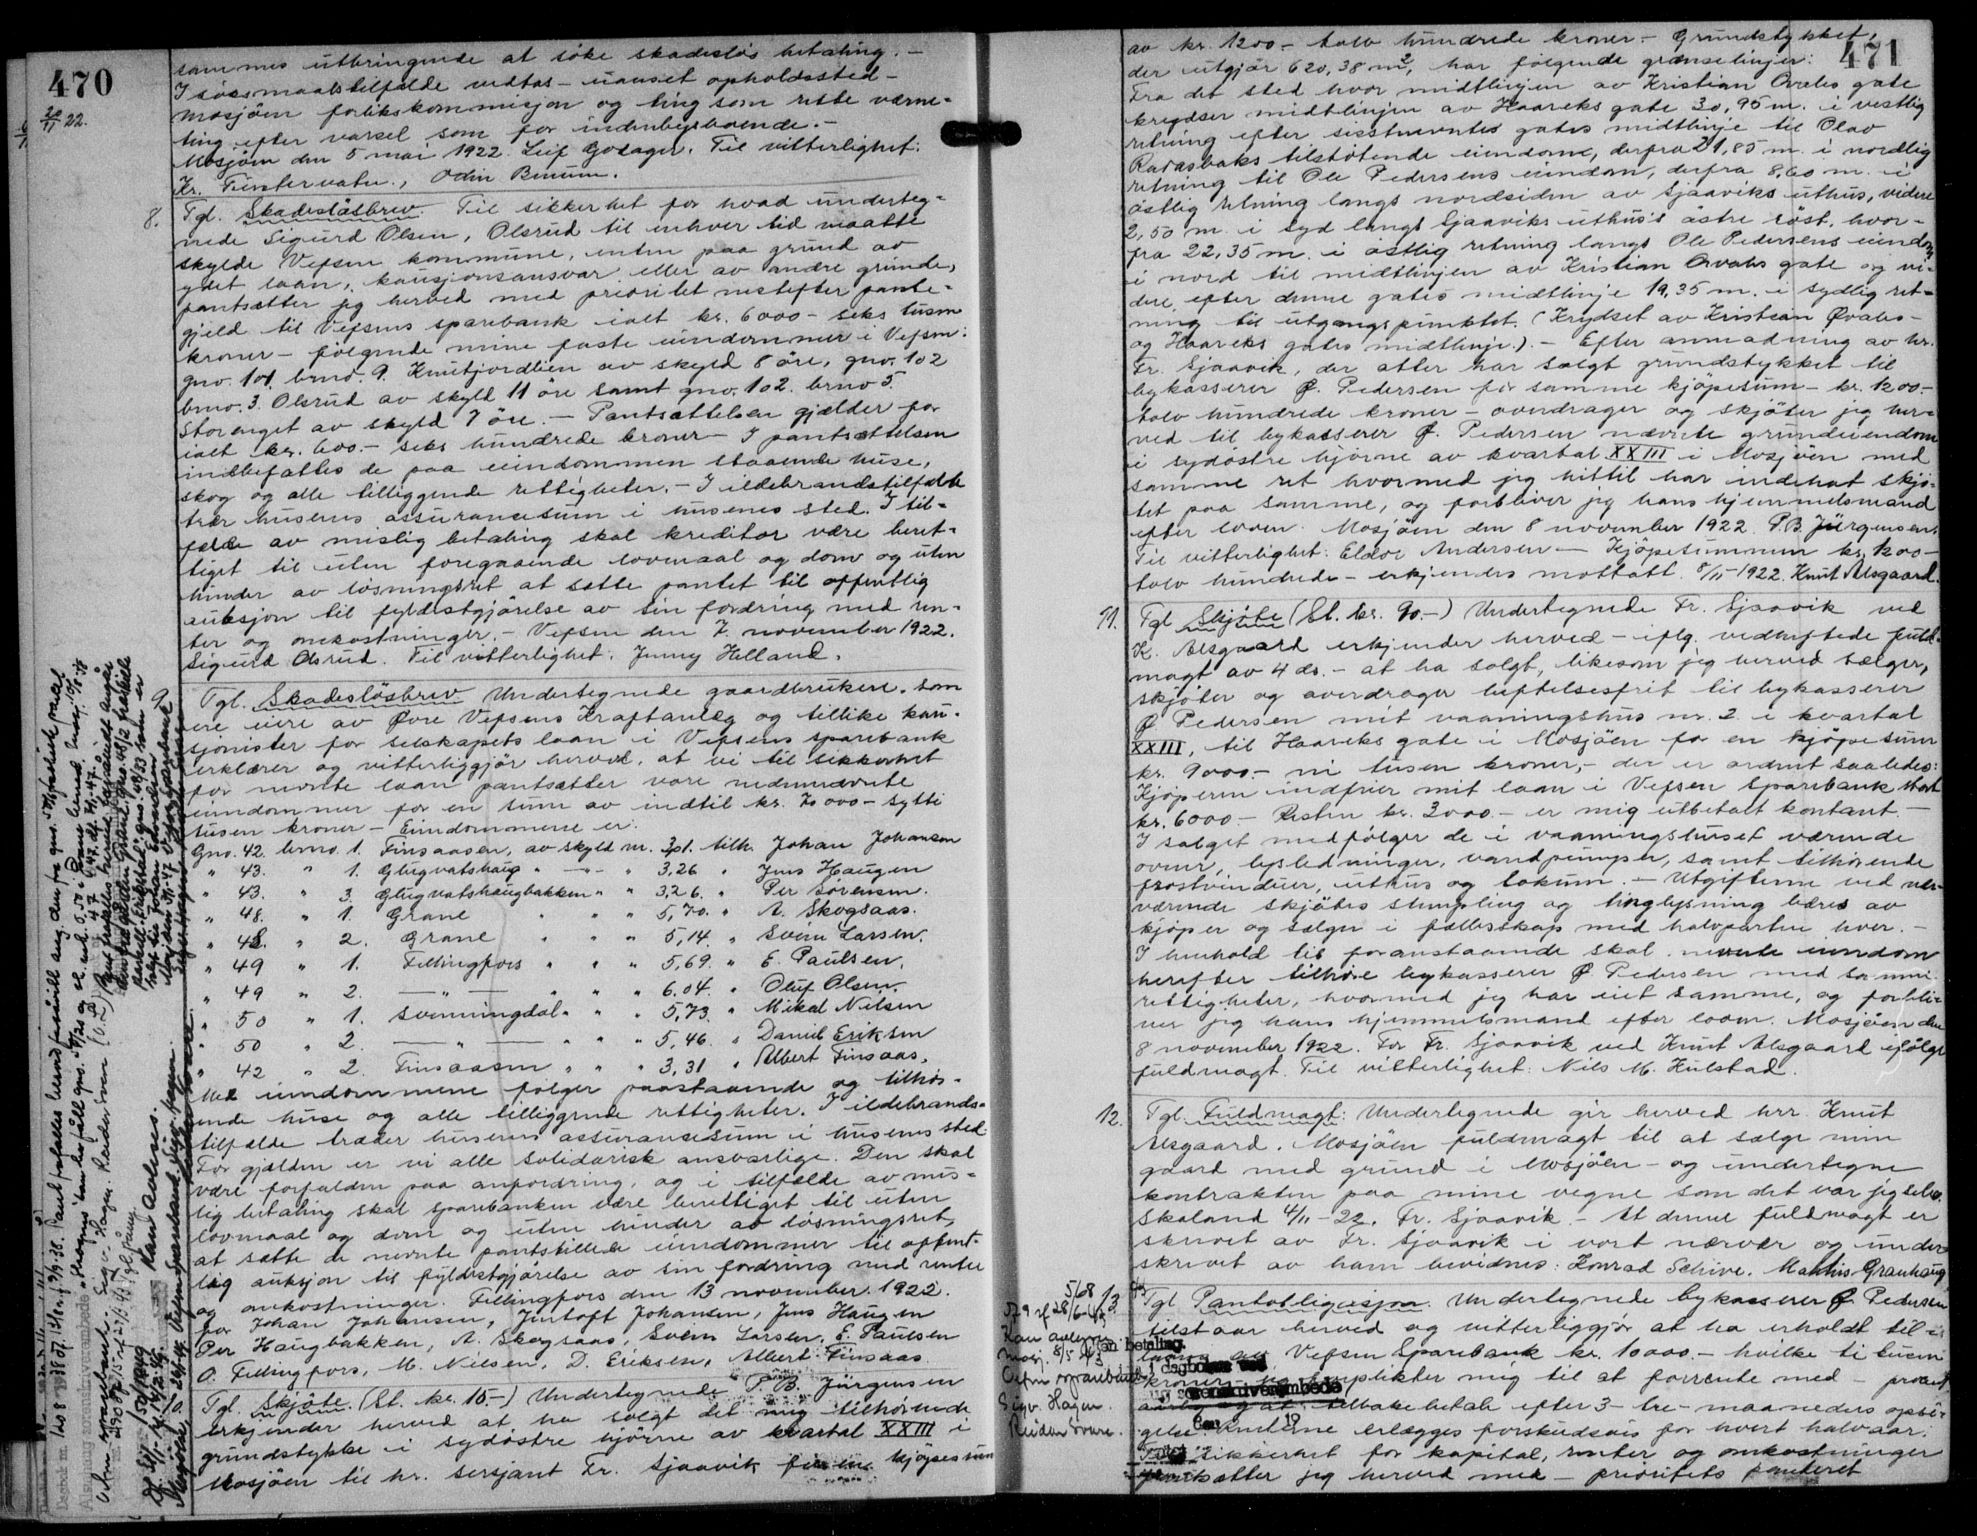 470
20/11 22.
sammes utbringende at söke skadeslös betaling. —
I søssmaalstilfælde vedtas – uanset opholdssted –
Mosjöen forlikskommisjon og ting som rette værne-
ting efter varsel som for indenbysboende. –
Mosjöen den 5 mai 1922. Leif Godager. Til vitterlighet:
Kr. Finstervatn., Odin Benum.
8.
Tgl. Skadeslösbrev. Til sikkerhet for hvad underteg-
nede Sigurd Olsen, Olsrud til enhver tid maatte
skylde Vefsen kommune, enten paa grund av
ydet laan, kausjonsansvar eller av andre grunde,
pantsætter jeg herved med prioritet nestefter pante-
gjeld til Vefsens sparebank ialt kr. 6000 – seks tusen
kroner – følgende mine faste eiendommer i Vefsen:
gno. 101 brno. 9. Knutfjordlien av skyld 8 öre, gno. 102
brno. 3. Olsrud av skyld 11 öre samt gno. 102. brno 5.
Storenget av skyld 7 öre. – Pantsættelsen gjælder for
ialt kr. 600.– seks hundrede kroner – I pantsættelsen
indbefattes de paa eiendommen staaende huse,
skog og alle tilliggende rettigheter. – I ildebrandstilfælde
trær husenes assurancesum i husenes sted. I til-
fælde av mislig betaling skal kreditor være beret-
tiget til uten foregaaende lovmaal og dom og uten
hinder av løsningsret at sætte pantet til offentlig
auksjon til fyldestgjörelse av sin fordring med ren-
ter og omkostninger. – Vefsen den 7. november 1922.
Sigurd Olsrud. Til vitterlighet: Jenny Helland.
9.
Tgl. Skadeslösbrev Undertegnede gaardbrukere, som
ere eiere av Øvre Vefsens Kraftanlæg og tillike kau-
sjonister for selskapets laan i Vefsens sparebank
erklærer og vitterliggjör herved, at vi til sikkerhet
for nævnte laan pantsætter vore nedennævnte
eiendommer for en sum av indtil kr. 70 000 – sytti
tusen kroner – Eiendommene er:
Gno. 42 brno. 1. Finsaasen, av skyld m. 3,01. tilh. Johan Johansen
" 43. " 1. Glugvatshaug " – " – " 3,26 " Jens Haugen
" 43. " 3. Glugvatshaugbakken " " 3,26. " Per Sörensen.
" 48. " 1. Grane " " " 5,70. " A. Skogsaas.
" 48. " 2. Grane " " " 5,14. " Svein Larsen.
" 49 " 1. Fellingfors " " " 5,69. " E. Paulsen.
" 49 " 2. — " — " " " 6.04. " Oluf Olsen.
" 50 " 1. Svenningdal " " " 5,73. " Mikal Nilsen
" 50 " 2. — " — " " " 5,46. " Daniel Eriksen
" 42 " 2. Finsaasen " " " 3,31 " Albert Finsaas.
Med eiendommene følger paastaaende og tilhör-
ende huse og alle tilliggende rettigheter. I ildebrands-
tilfælde træder husenes assurancesum i husenes sted.
For gjælden er vi alle solidarisk ansvarlige. Den skal
være forfalden paa anfordring, og i tilfælde av mis-
lig betaling skal sparebanken være berettiget til uten
lovmaal og dom og uten hinder av løsningsret,
at sætte de nævnte pantstillede eiendommer til offent-
lig auksjon til fyldestgjörelse av sin fordring med renter
og omkostninger. Fellingfors den 13 november 1922.
for Johan Johansen, Jentoft Johansen, Jens Haugen
Per Haugbakken, A. Skogsaas, Svein Larsen, E. Paulsen
O. Fellingfors, M. Nielsen, D. Eriksen, Albert Finsaas
Tgl. Skjöte (St. kr. 15.–) Undertegnede P. B. Jürgensen
erkjender herved at ha solgt det mig tilhörende
grundstykke i sydöstre hjörne av kvartal XXIII i
Mosjöen til hr. sersjant Fr. Sjaavik for en kjöpesum
471
av kr. 1200.– tolv hundrede kroner – Grundstykket,
der utgjör 620,38 m², har følgende grænselinjer:
Fra det sted hvor midtlinjen av Kristian Qvales gate
krydser midtlinjen av Haareks gate 30,95 m. i vestlig
retning efter sistnævntes gates midtlinje til Olav
Ravasbaks tilstötende eiendom, derfra 21,85 m. i nordlig
retning til Ole Pedersens eiendom, derfra 8,60 m. i
östlig retning langs nordsiden av Sjaaviks uthus, videre
2,50 m. i syd langs Sjaaviks uthus's östre röst, hvor-
fra 22,35 m. i östlig retning langs Ole Pedersens eiendom
i nord til midtlinjen av Kristian Qvales gate og vi-
dere efter denne gates midtlinje 19,35 m. i sydlig ret-
ning til utgangspunktet. (Krydset av Kristian Qvales–
og Haareks gates midtlinje.). – Efter anmodning av hr.
Fr. Sjaavik, der atter har solgt grundstykket til
bykasserer Ø. Pedersen for samme kjöpesum – kr. 1200.–
tolv hundrede kroner – overdrager og skjöter jeg her-
ved til bykasserer Ø. Pedersen nævnte grundeiendom
i sydöstre hjörne av kvartal XXIII i Mosjöen med
samme ret hvormed jeg hittil har indehat skjö-
tet paa samme, og forbliver jeg hans hjemmelsmand
efter loven. Mosjöen den 8 november 1922. P.B. Jürgensen.
Til vitterlighet: Eldor Andersen — Kjöpesummen kr. 1200 –
tolv hundrede – erkjendes mottatt. 8/11–1922. Knut Alsgaard.
11.
Tgl Skjöte (St. kr. 90.–) Undertegnede Fr. Sjaavik ved
K. Alsgaard erkjender herved – iflg. vedheftede fuld-
magt av 4 ds. – at ha solgt, likesom jeg herved sælger,
skjöter og overdrager heftelsesfrit til bykasserer
Ø Pedersen mit vaaningshus nr. 2 i kvartal
XXIII, til Haareks gate i Mosjöen for en kjöpesum
kr. 9000.– ni tusen kroner, – der er ordnet saaledes:
Kjöperen indfrier mit laan i Vefsen Sparebank stort
kr. 6000.– Resten kr. 3000.– er mig utbetalt kontant. –
I salget medfølger de i vaaningshuset værende
ovner, lysledninger, vandpumper, samt tilhörende
frostvinduer, uthus og lokum. – Utgifterne ved nær-
værende skjötes stempling og tinglysning bæres av
kjöper og sælger i fællesskap med halvparten hver. –
I henhold til foranstaaende skal nævnte eiendom
herefter tilhöre bykasserer Ø. Pedersen med samme
rettigheter, hvormed jeg har eiet samme, og forbli-
ver jeg hans hjemmelsmand efter loven. Mosjöen den
8 november 1922. For Fr. Sjaavik ved Knut Alsgaard ifölge
fuldmagt. Til vitterlighet: Nils M. Kulstad.
12.
Tgl. Fuldmagt: Undertegnede gir herved herr Knut
Alsgaard, Mosjöen fuldmagt til at sælge min
gaard med grund i Mosjöen – og undertegne
kontrakten paa mine vegne som det var jeg selv.
Skaland 4/11 – 22. Fr. Sjaavik. – At denne fuldmagt er
skrevet av Fr. Sjaavik i vort nærvær og under-
skrevet av ham bevidnes: Konrad Schive. Mathis Granhaug
13.
Tgl Pantobligasjon. Undertegnede bykasserer Ø Pedersen
tilstaar herved og vitterliggjör at ha erholdt til-
laans av Vefsen Sparebank kr. 10000.– hvilke ti tusen
kroner jeg forplikter mig til at forrente med – procent
aarlig og at tilbakebetale efter 3– tre– maaneders opsi-
gelse. Renterne erlægges forskudsvis for hvert halvaar.
Til sikkerhet for kapital, renter og omkostninger
pantsætter jeg herved med – prioritets panteret